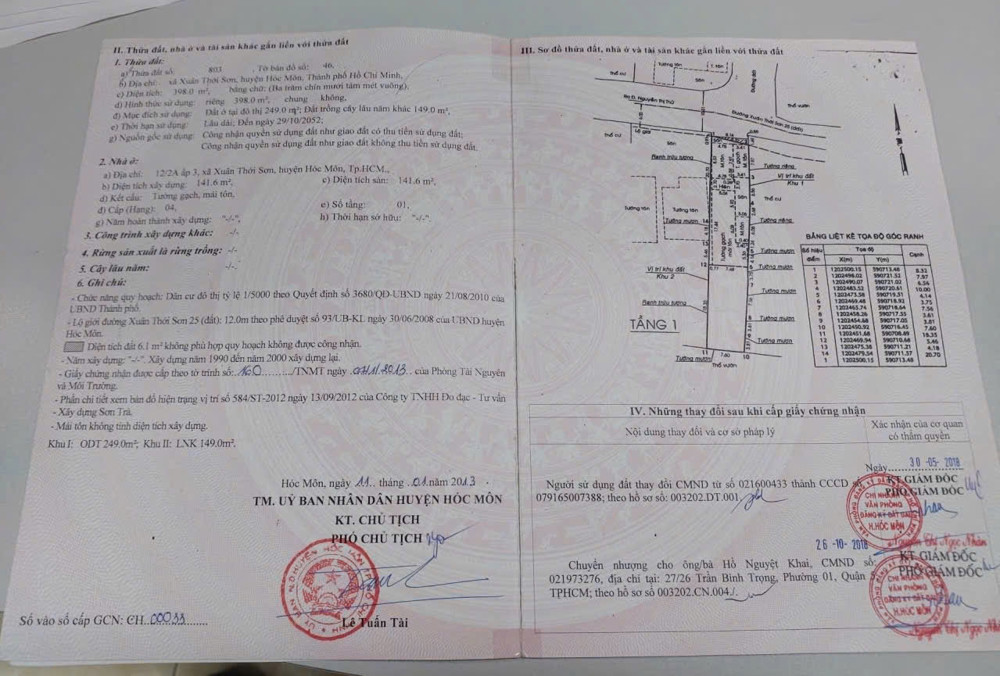 II. Thửa đất, nhà ở và tài sản khác gắn liền với thửa đất
1. Thửa đất:
a) Thửa đất số: 803, Tờ bản đồ số: 46,
b) Địa chỉ: xã Xuân Thới Sơn, huyện Hóc Môn, Thành phố Hồ Chí Minh,
c) Diện tích: 398.0 m², bằng chữ: (Ba trăm chín mươi tám mét vuông);
d) Hình thức sử dụng: riêng 398.0 m², chung không,
đ) Mục đích sử dụng: Đất ở tại đô thị 249.0 m²; Đất trồng cây lâu năm khác 149.0 m²
e) Thời hạn sử dụng: Lâu dài; Đến ngày 29/10/2052;
g) Nguồn gốc sử dụng: Công nhận quyền sử dụng đất như giao đất có thu tiền sử dụng đất;
Công nhận quyền sử dụng đất như giao đất không thu tiền sử dụng đất.
2. Nhà ở:
a) Địa chỉ: 12/2A ấp 3, xã Xuân Thới Sơn, huyện Hóc Môn, Tp.HCM.,
b) Diện tích xây dựng: 141.6 m², c) Diện tích sàn: 141.6 m²,
d) Kết cấu: Tường gạch, mái tôn,
đ) Cấp (Hạng): 04, e) Số tầng: 01,
g) Năm hoàn thành xây dựng: "-/-", h) Thời hạn sở hữu: "-/-",
3. Công trình xây dựng khác: -/-
4. Rừng sản xuất là rừng trồng: -/-
5. Cây lâu năm: -/-
6. Ghi chú:
- Chức năng quy hoạch: Dân cư đô thị tỷ lệ 1/5000 theo Quyết định số 3680/QĐ-UBND ngày 21/08/2010 của
UBND Thành phố.
- Lộ giới đường Xuân Thới Sơn 25 (đất): 12.0m theo phê duyệt số 93/UB-KL ngày 30/06/2008 của UBND huyện
Hóc Môn.
Diện tích đất 6.1 m² không phù hợp quy hoạch không được công nhận.
- Năm xây dựng: "-/-". Xây dựng năm 1990 đến năm 2000 xây dựng lại.
- Giấy chứng nhận được cấp theo tờ trình số: 160 /TNMT ngày 07/1/2013 của Phòng Tài Nguyên
và Môi Trường.
- Phần chi tiết xem bản đồ hiện trạng vị trí số 584/ST-2012 ngày 13/09/2012 của Công ty TNHH Đo đạc - Tư vấn
- Xây dựng Sơn Trà.
- Mái tôn không tính diện tích xây dựng.
Khu I: ODT 249.0m²; Khu II: LNK 149.0m².
Hóc Môn, ngày 11 tháng 01 năm 2013
TM. UỶ BAN NHÂN DÂN HUYỆN HÓC MÔN
KT. CHỦ TỊCH
PHÓ CHỦ TỊCH
Lê Tuấn Tài
Số vào sổ cấp GCN: CH 00033
III. Sơ đồ thửa đất, nhà ở và tài sản khác gắn liền với thửa đất
Thổ cư
Đường đất
Thổ vườn
Đi Đ. Nguyễn Thị Thử
Đường Xuân Thới Sơn 25 (đất)
Lộ giới
Ranh trừu tượng
Tường riêng
Vị trí khu đất
Khu 1
Thổ cư
Tường tôn
Tường riêng
Tường mượn
Tường gạch
mái tôn
Vị trí khu đất
Khu 2
Tường mượn
Ranh trừu tượng
Tường mượn
TẦNG 1
Tường mượn
Tường mượn
Thổ vườn
BẢNG LIỆT KÊ TỌA ĐỘ GÓC RANH
Số hiệu điểm Tọa độ Cạnh
X(m) Y(m)
1 1202500.15 590713.48 8.32
2 1202498.02 590721.52 7.97
3 1202490.07 590721.02 6.56
4 1202483.52 590720.61 10.00
5 1202473.58 590719.51 4.14
6 1202469.48 590718.92 3.75
7 1202465.74 590718.64 7.56
8 1202458.26 590717.55 3.61
9 1202454.68 590717.05 3.81
10 1202450.92 590716.45 7.60
11 1202451.68 590708.89 18.35
12 1202469.94 590710.68 5.46
13 1202475.38 590711.21 4.18
14 1202479.54 590711.37 20.70
1 1202500.15 590713.48
IV. Những thay đổi sau khi cấp giấy chứng nhận
Nội dung thay đổi và cơ sở pháp lý
Xác nhận của cơ quan
có thẩm quyền
Ngày 30-05-2018
Người sử dụng đất thay đổi CMND từ số 021600433 thành CCCD số
079165007388; theo hồ sơ số: 003202.DT.001
KT.GIÁM ĐỐC
PHÓ GIÁM ĐỐC
CHI NHÁNH
VĂN PHÒNG
ĐĂNG KÝ ĐẤT ĐAI
H.HÓC MÔN
Nguyễn Thị Ngọc Nhân
26-10-2018
Chuyển nhượng cho ông/bà Hồ Nguyệt Khai, CMND số:
021973276, địa chỉ tại: 27/26 Trần Bình Trọng, Phường 01, Quận
TPHCM; theo hồ sơ số 003202.CN.004
KT.GIÁM ĐỐC
PHÓ GIÁM ĐỐC
CHI NHÁNH
VĂN PHÒNG
ĐĂNG KÝ ĐẤT ĐAI
H.HÓC MÔN
Nguyễn Thị Ngọc Nhân